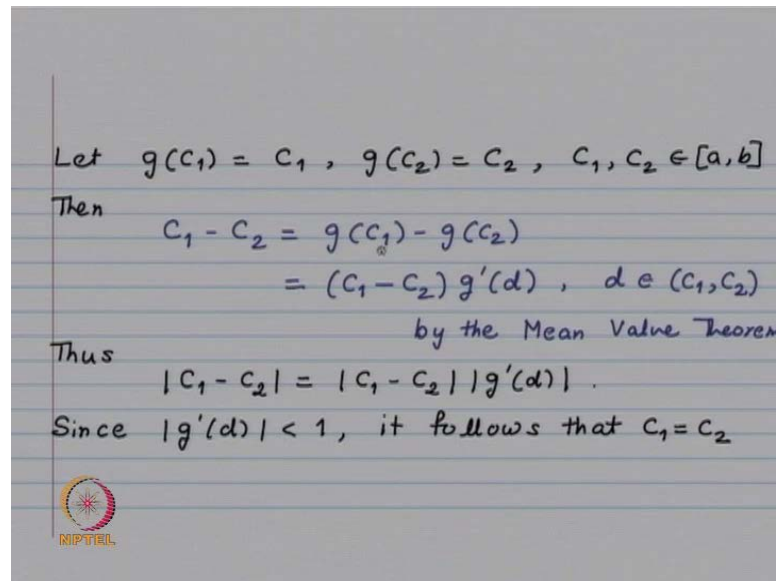 Let g(C₁) = C₁ , g(C₂) = C₂ , C₁, C₂ ∈ [a,b]
Then
C₁ - C₂ = g(C₁) - g(C₂)
= (C₁ - C₂) g'(d) , d ∈ (C₁, C₂)
by the Mean Value Theorem
Thus
|C₁ - C₂| = |C₁ - C₂| |g'(d)| .
Since |g'(d)| < 1, it follows that C₁ = C₂
NPTEL